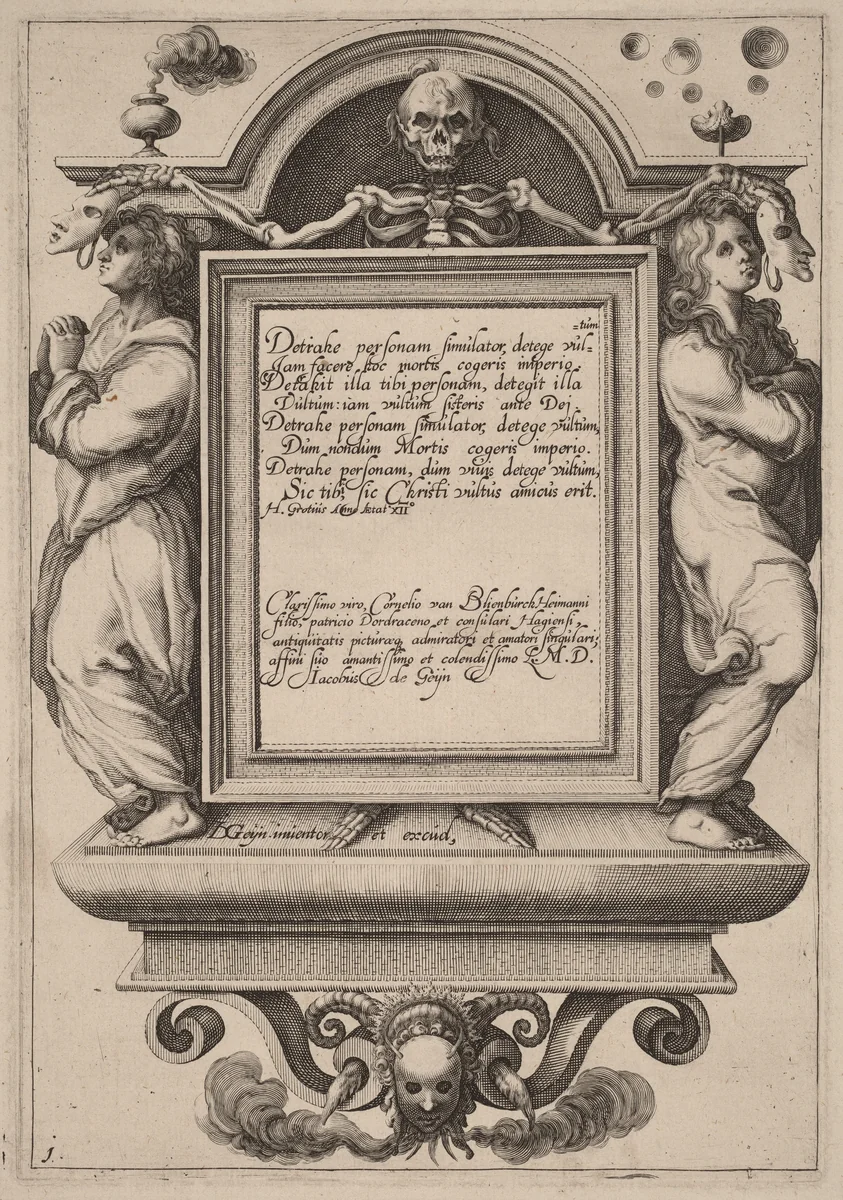 Detrahe personam simulator, detege vul=
=tum
Jam facere hoc mortis cogeris imperio
Detrahit illa tibi personam, detegit illa
Vultum: iam vultum sisteris ante Dei
Detrahe personam simulator, detege vultum,
Dum nondum Mortis cogeris imperio.
Detrahe personam, dum vivis detege vultum,
Sic tibi, sic Christi vultus amicus erit.
H. Grotius Anno Ætat XIIº
Clarissimo viro, Cornelio van Blienburch Heimanni
filio, patricio Dordraceno et consulari Hagiensi,
antiquitatis picturæq. admiratori et amatori singulari,
affini suo amantissimo et colendissimo L. M. D.
Iacobus de Geijn
IDGeijn inventor et excud,
1.